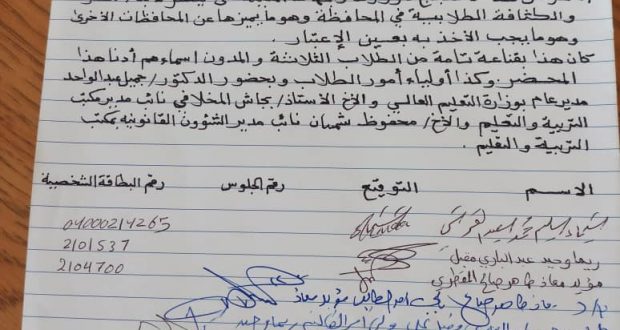 والكثافة الطلابية في المحافظة وهو ما يميزها عن المحافظات الأخرى
وهو ما يجب الأخذ به بعين الإعتبار .
كان هذا بقناعة تامة من الطلاب الثلاثة والمدون اسماءهم أدنا هذا
المحضر. وكذا أولياء أمور الطلاب وبحضور الدكتور/ جميل عبدالواحد
مدير عام بوزارة التعليم العالي والأخ الأستاذ/ بجاش المخلافي نائب مدير مكتب
التربية والتعليم والأخ/ محفوظ شمسان نائب مدير الشؤون القانونية بمكتب
التربية والتعليم .
الاسم التوقيع رقم الجلوس رقم البطاقة الشخصية
محمد سعيد 04000214265
ريما وحيد عبدالباري مقبل 2101537
مؤيد معاذ طاهر صالح 2104700
معاذ طاهر صالح مؤيد معاذ